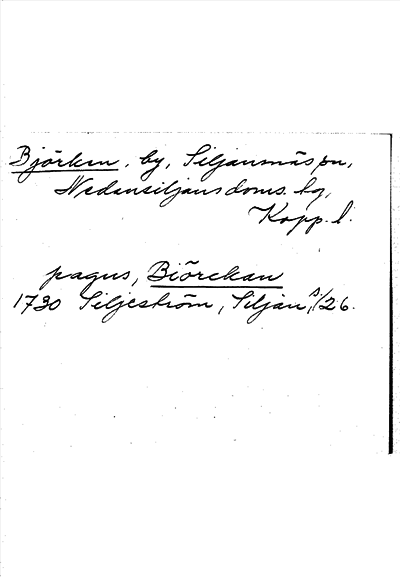 Björken, by, Siljansnäs sn,
Nedansiljans doms. hg,
Kopp. l.
pagus, Biörckan
1730 Siljeström, Siljan, s/26.